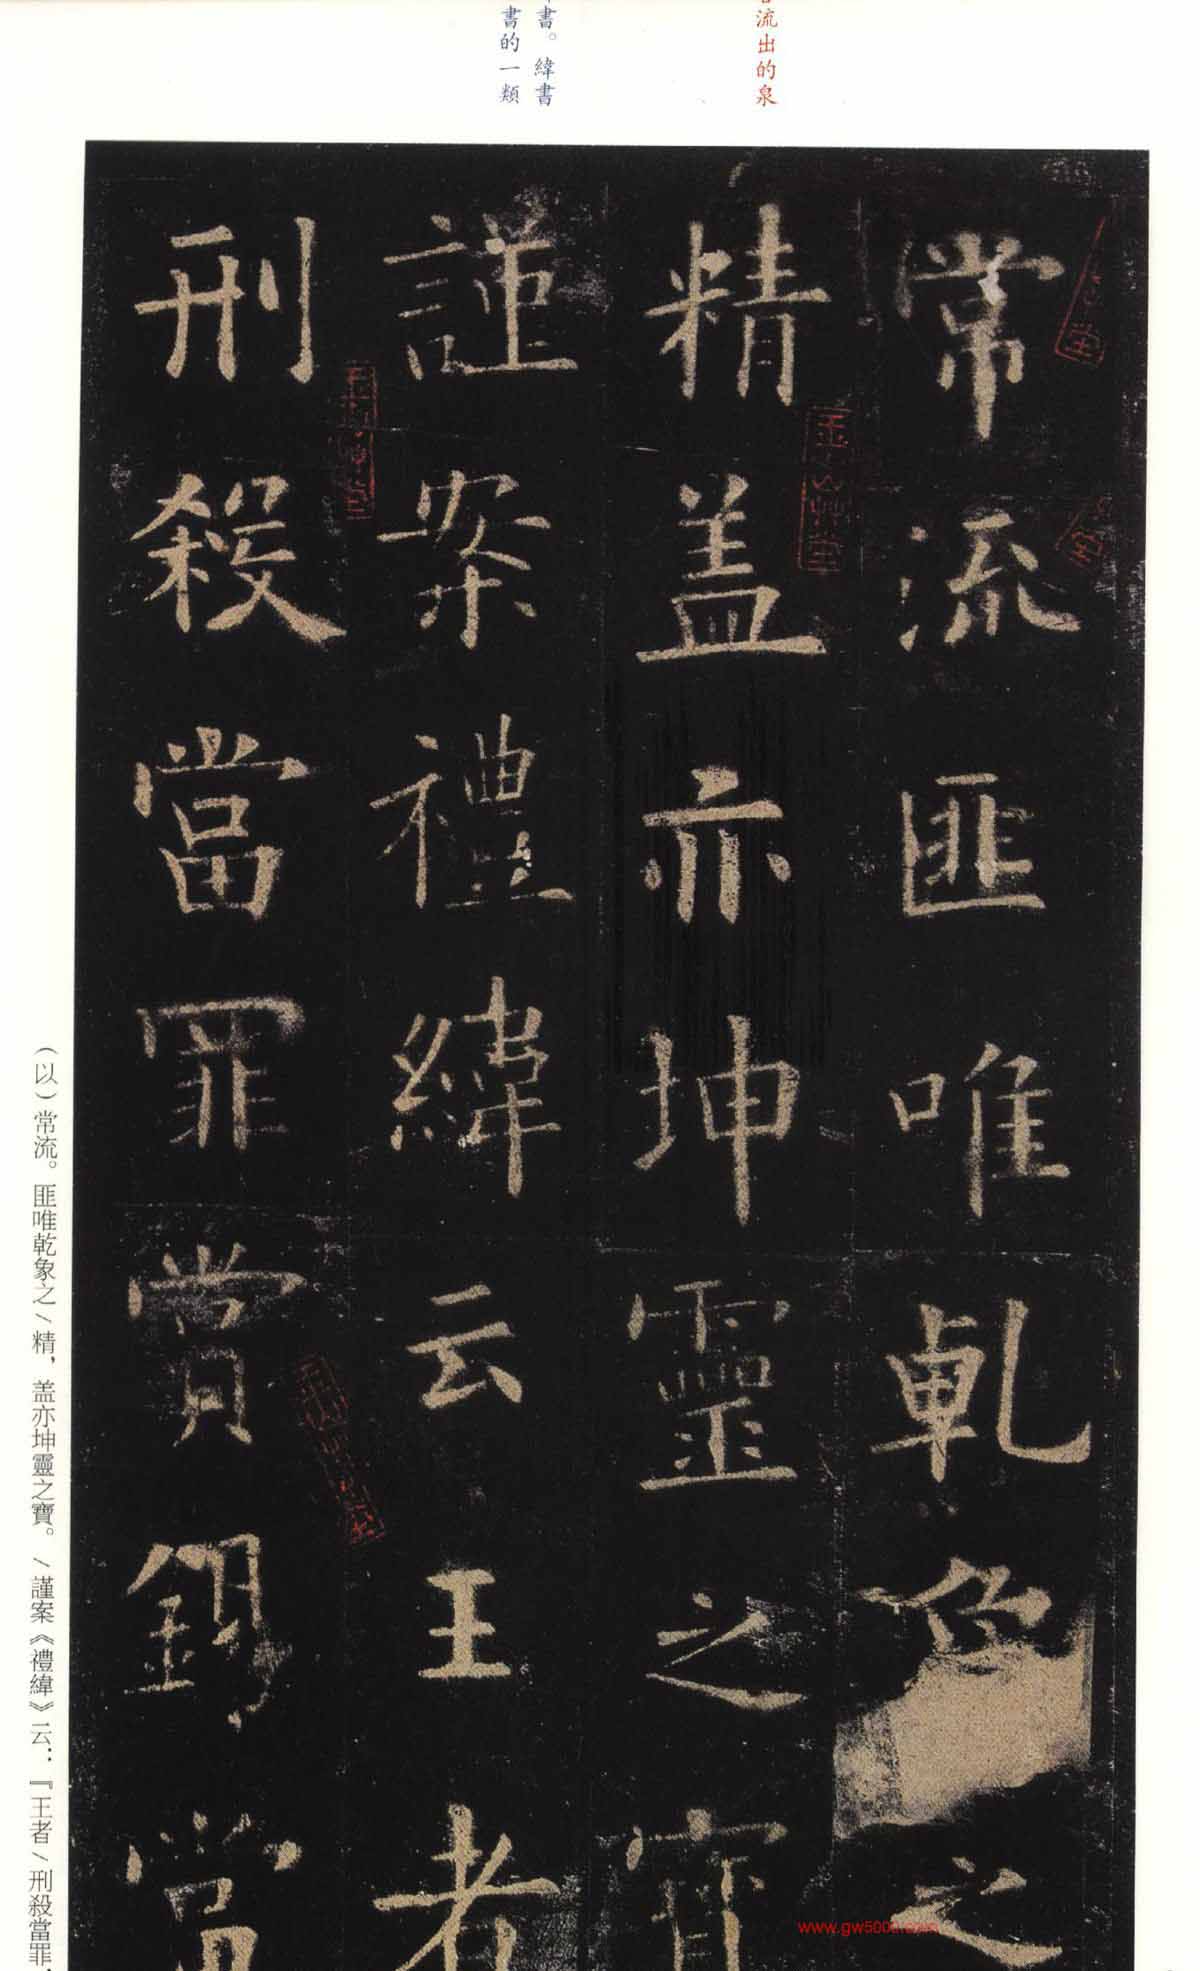 流出的泉
書。緯書
書的一類
常流匪唯乹象之
精盖亦坤靈之寶
謹案禮緯云王者
刑殺當罪賞錫當
（以）常流。匪唯乾象之/精，盖亦坤靈之寶。/謹案《禮緯》云：『王者/刑殺當罪，
www.gw5000.com